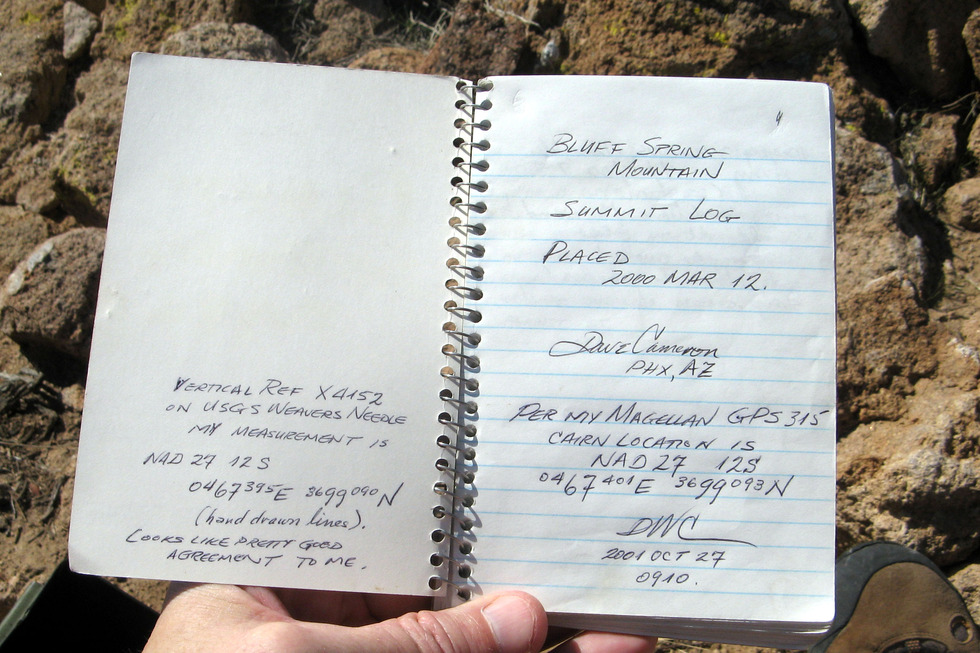 VERTICAL REF X4152
ON USGS WEAVERS NEEDLE
MY MEASUREMENT IS
NAD 27 12S
0467395E 3699090N
(hand drawn lines).
LOOKS LIKE PRETTY GOOD
AGREEMENT TO ME.
BLUFF SPRING
MOUNTAIN
SUMMIT LOG
PLACED
2000 MAR 12.
Dave Cameron
PHX, AZ
PER MY MAGELLAN GPS 315
CAIRN LOCATION IS
NAD 27 12S
0467401E 3699093N
DWC
2001 OCT 27
0910.